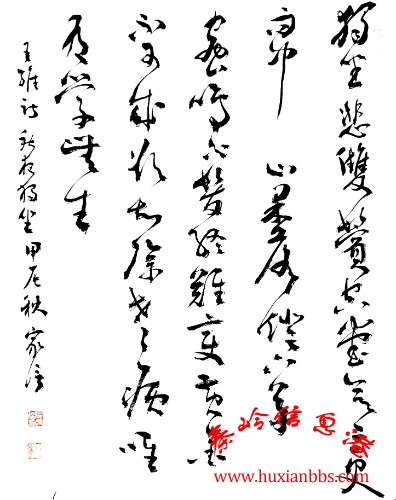 獨坐悲雙鬢空堂欲二更
雨中山果落燈下草
蟲鳴白髮終難變黃金
不可成欲知除老病唯
有學無生
王維詩 秋夜獨坐 甲辰秋 家
www.huxianbbs.com